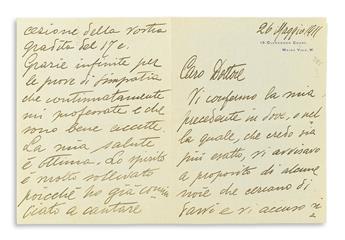 26 Maggio, 1911
Maida Vale, W.
Caro Dottore
Vi confermo la mia
precedente in dove, nel
la quale, che credo sia
più esatto, vi avvisavo
a proposito di alcune
noie che cercano di
farvi e vi accuso ri
cezione della vostra
gradita del 17 c.
Grazie infinite per
le prove di simpatia
che continuatamente
mi professate e che
sono bene accette.
La mia salute
è ottima. Lo spirito
è molto sollevato
poicchè ho già comin
ciato a cantare